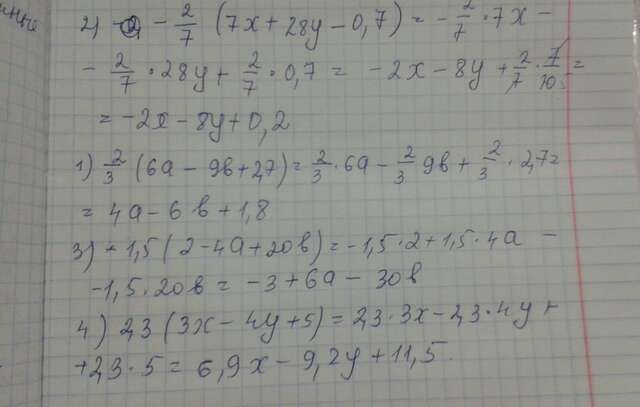 2) - 2/7 (7x + 28y - 0,7) = - 2/7 · 7x -
- 2/7 · 28y + 2/7 · 0,7 = -2x - 8y + 2/7 · 7/10 =
= -2x - 8y + 0,2
1) 2/3 (6a - 9b + 2,7) = 2/3 · 6a - 2/3 9b + 2/3 · 2,7 =
= 4a - 6b + 1,8
3) - 1,5 (2 - 4a + 20b) = -1,5 · 2 + 1,5 · 4a -
-1,5 · 20b = -3 + 6a - 30b
4) 2,3 (3x - 4y + 5) = 2,3 · 3x - 2,3 · 4y +
+ 2,3 · 5 = 6,9x - 9,2y + 11,5.